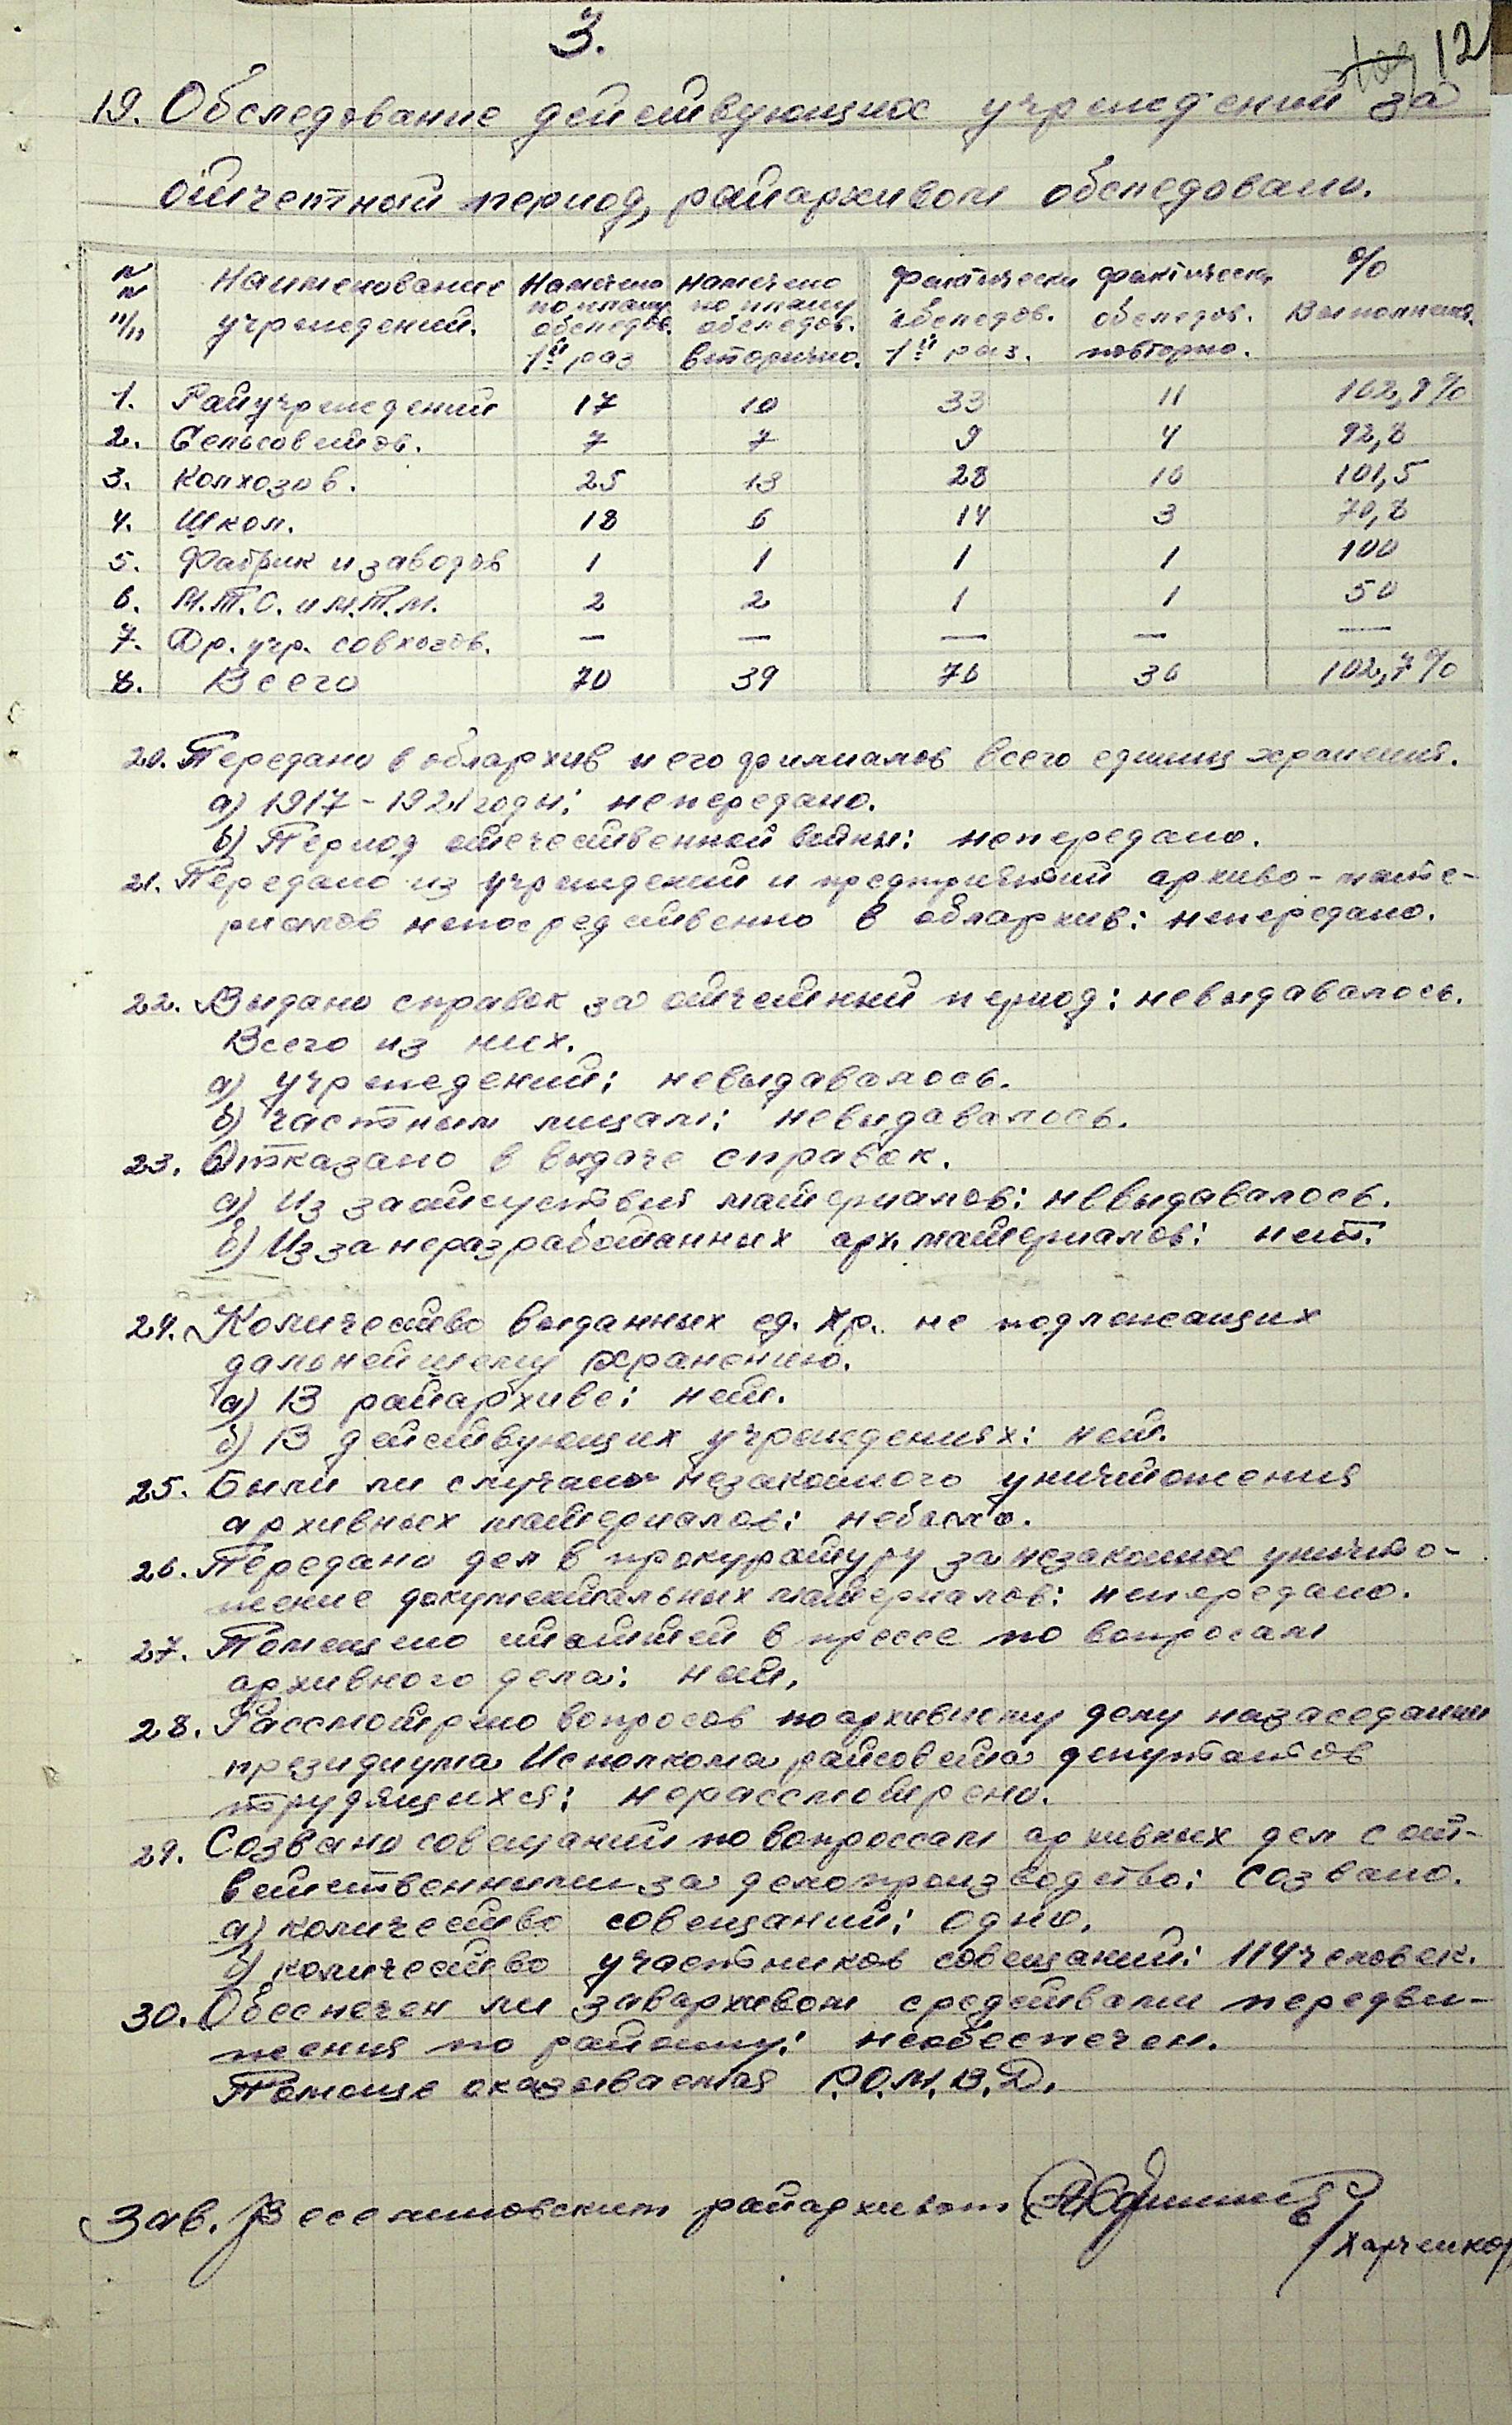 3.
12
19. Обследование действующих учреждений за
отчетный период, райархивом обследовано.
№ № п/п Наименование учреждений. Намечено по плану обследов. 1й раз намечено по плану обследов. вторично. фактически обследов. 1й раз. фактически обследов. повторно. % Выполнения
1. Райучреждений 17 10 33 11 102,9%
2. Сельсоветов. 7 7 9 4 92,8
3. Колхозов. 25 13 28 10 101,5
4. Школ. 18 6 14 3 70,8
5. Фабрик и заводов 1 1 1 1 100
6. М.Т.С. и М.Т.М. 2 2 1 1 50
7. Др. учр. совхозов. — — — — —
8. Всего 70 39 76 30 102,7%
20. Передано в облархив и его филиалов всего единиц хранения.
а) 1917-1921 годы: непередано.
б) Период отечественной войны: непередано.
21. Передано из учреждений и предприятий архиво-мате-
риалов непосредственно в облархив: непередано.
22. Выдано справок за отчетный период: невыдавалось.
Всего из них.
а) учреждений: невыдавалось.
б) частным лицам: невыдавалось.
23. Отказано в выдаче справок.
а) Из заотсуствия материалов: невыдавалось.
б) Из за неразработанных арх. материалов: нет.
24. Количество выданных ед. хр. не подлежащих
дальнейшему хранению.
а) В райархиве: нет.
б) В действующих учреждениях: нет.
25. Были ли случаи незаконного уничтожения
архивных материалов: небыло.
26. Передано дел в прокуратуру за незаконное уничто-
жение документальных материалов: непередано.
27. Помещено статтей в прессе по вопросам
архивного дела: нет.
28. Рассмотрено вопросов по архивному делу на заседании
президиума Исполкома райсовета депутатов
трудящихся: нерассмотрено.
29. Созвано совещаний по вопроссам архивных дел с от-
ветственными за делопроизводство: созвано.
а) количество совещаний: одно.
б) количество участников совещаний: 114 человек.
30. Обеспечен ли завархивом средствами передви-
жения по району: необеспечен.
Помощь оказываемая Р.О.М.В.Д.
Зав. Веселиновским райархивом
/Харченко/